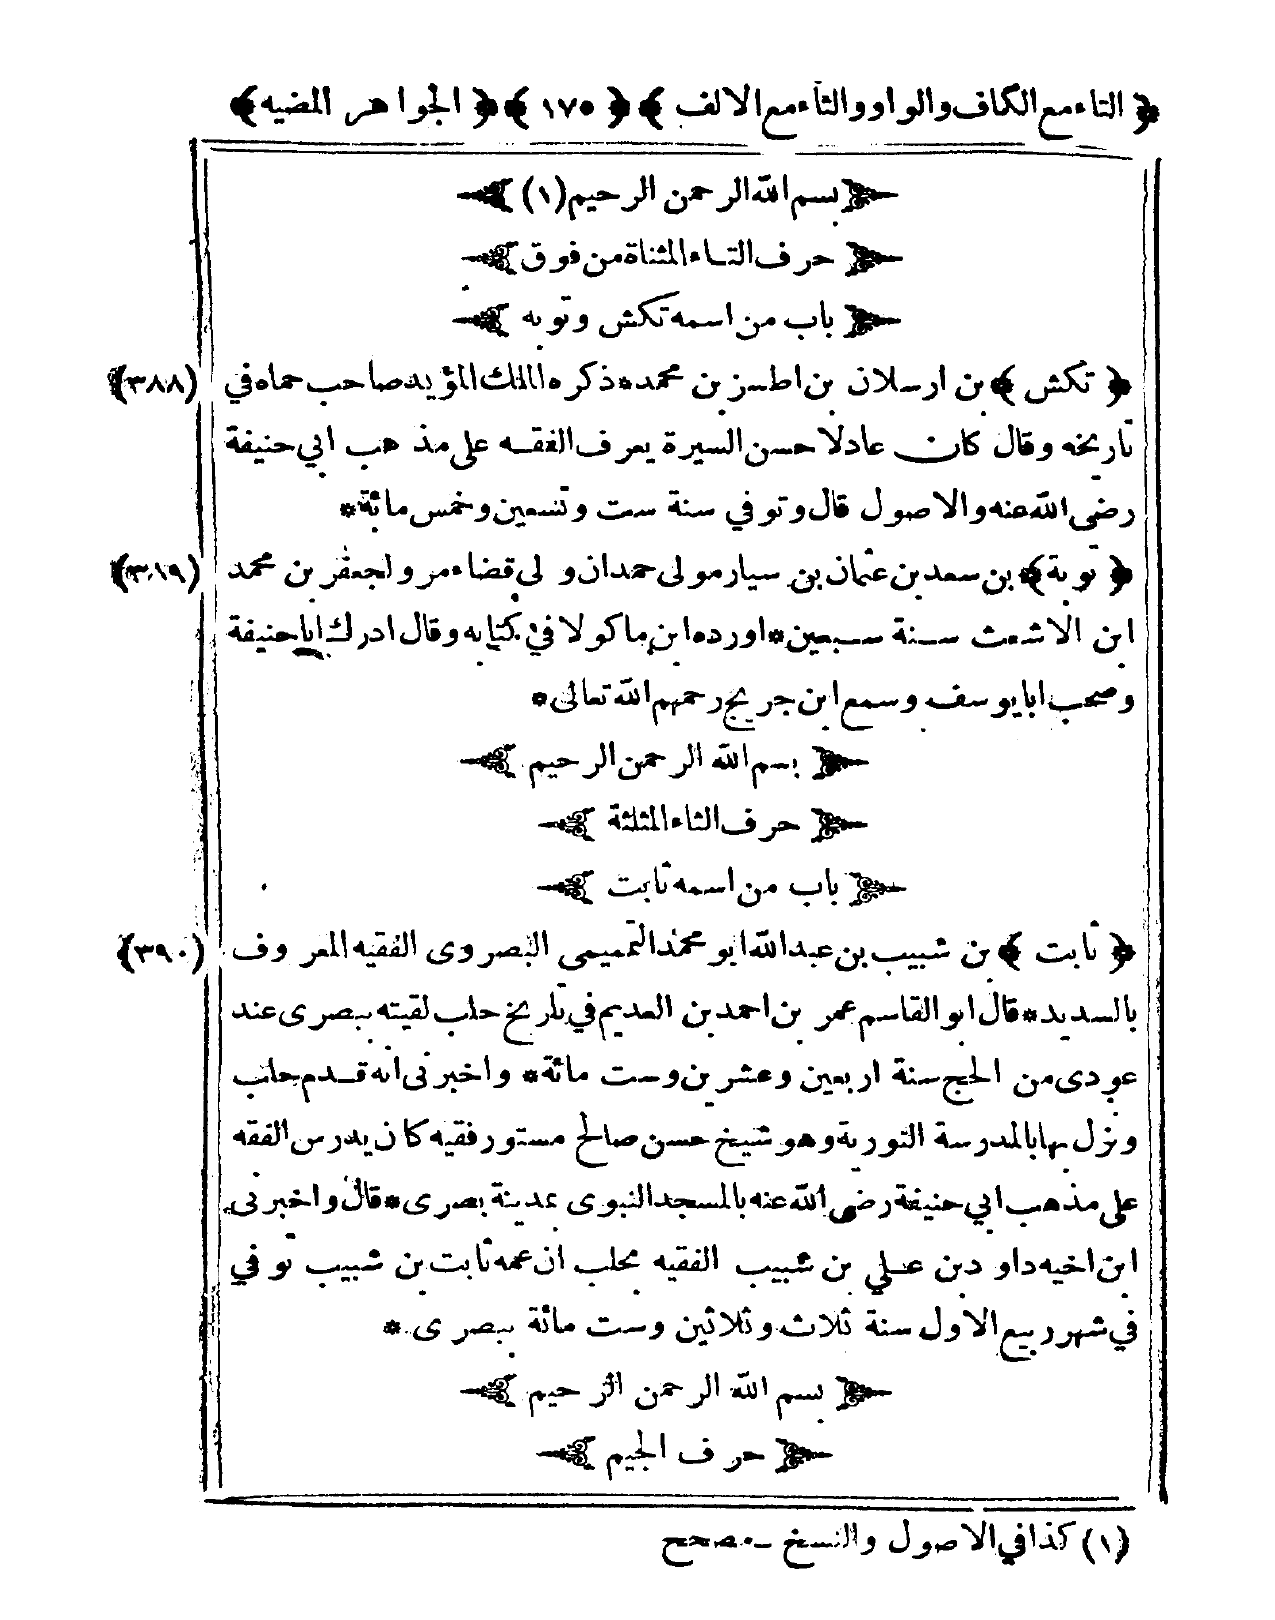 ﴿ التاء مع الكاف والواو والثاء مع الالف ﴾ ﴿ ١٧٥ ﴾ ﴿ الجواهر المضيه ﴾
بسم الله الرحمن الرحيم (١)
حرف التاء المثناة من فوق
باب من اسمه تكش وتوبه
﴿ تكش ﴾ بن ارسلان بن اطسز بن محمد * ذكره الملك المؤيد صاحب حماه في (٣٨٨)
تاريخه وقال كان عادلا حسن السيرة يعرف الفقه على مذهب ابي حنيفة
رضى الله عنه والاصول قال وتوفي سنة ست وتسعين وخمس مائة *
﴿ توبة ﴾ بن سعد بن عثمان بن سيار مولى حمدان ولى قضاء مرو لجعفر بن محمد (٣٨٩)
ابن الاشعث سنة سبعين * اورده ابن ماكولا في كتابه وقال ادرك ابا حنيفة
وصحب ابا يوسف وسمع ابن جريج رحمهم الله تعالى *
بسم الله الرحمن الرحيم
حرف الثاء المثلثة
باب من اسمه ثابت
﴿ ثابت ﴾ بن شبيب بن عبد الله ابو محمد التميمى البصروى الفقيه المعروف (٣٩٠)
بالسديد * قال ابو القاسم عمر بن احمد بن العديم في تاريخ حلب لقيته ببصرى عند
عودى من الحج سنة اربعين وعشرين وست مائة * واخبرنى انه قدم حلب
ونزل بها بالمدرسة النورية وهو شيخ حسن صالح مستور فقيه كان يدرس الفقه
على مذهب ابي حنيفة رضى الله عنه بالمسجد النبوى بمدينة بصرى * قال واخبرنى
ابن اخيه داود بن علي بن شبيب الفقيه بحلب ان عمه ثابت بن شبيب توفي
في شهر ربيع الاول سنة ثلاث وثلاثين وست مائة ببصرى *
بسم الله الرحمن الرحيم
حرف الجيم
(١) كذا في الاصول والنسخ ـ مصحح